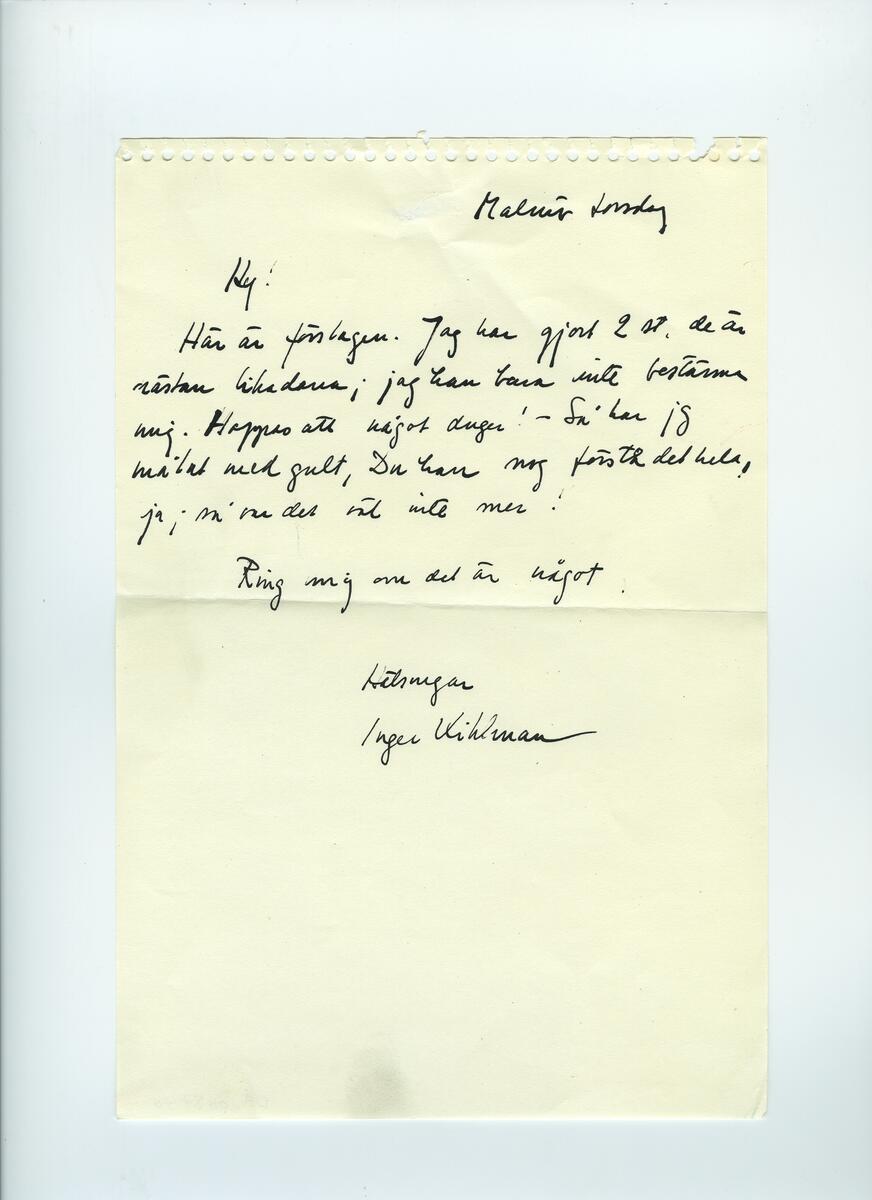 Malmö torsdag
Hej!
Här är förslagen. Jag har gjort 2 st. de är
nästan likadana; jag kan bara inte bestämma
mig. Hoppas att något duger! - Så har jag
målat med gult, Du kan nog förstå det hela,
ja; så var det väl inte mer!
Ring mig om det är något.
Hälsningar
Inger Kihlman